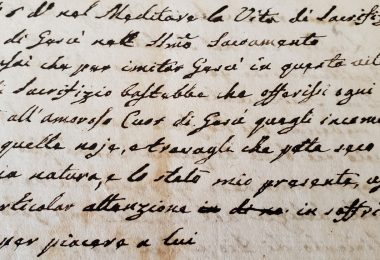 nel Meditare la Vita di Sacrifiz
di Gesù nell SSmo Sacramento
che per imitar Gesù in questo vit
Sacrifizio bastarebbe che offerissi ogni
all'amoroso Cuor di Gesù quegli incomo
quelle noje, e travagli che porta seco
natura, e lo stato mio presente,
articolar attenzione in soffri
per piacere a lui